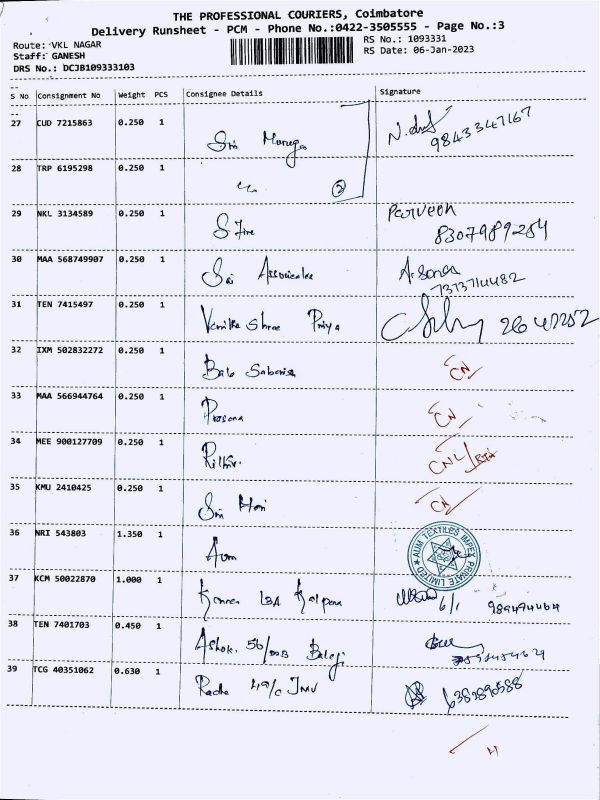 THE PROFESSIONAL COURIERS, Coimbatore
Delivery Runsheet - PCM - Phone No.:0422-3505555 - Page No.:3
Route: VKL NAGAR
RS No.: 1093331
Staff: GANESH
RS Date: 06-Jan-2023
DRS No.: DCJB109333103
S No Consignment No Weight PCS Consignee Details Signature
27 CUD 7215863 0.250 1 9843347167
28 TRP 6195298 0.250 1 2
29 NKL 3134589 0.250 1 Parveen
8307989254
30 MAA 568749907 0.250 1 Sri
7373714482
31 TEN 7415497 0.250 1 Shree Priya
32 IXM 502832272 0.250 1 CN
33 MAA 566944764 0.250 1 CN
34 MEE 900127709 0.250 1 CNL
35 KMU 2410425 0.250 1 Sri Hari CN
36 NRI 543803 1.350 1 Aum AUM TEXTILES IMPEX PRIVATE LIMITED
37 KCM 50022870 1.000 1 Kalpana 6/1
38 TEN 7401703 0.450 1 Ashok. 56/ Balaji
39 TCG 40351062 0.630 1 Radha 49/C JMV